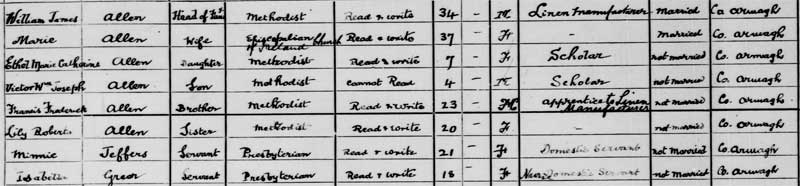 William James Allen Head of Family Methodist Read & write 34 - M Linen Manufacturer Married Co. armagh
Marie Allen Wife Episcopalian Church of Ireland Read & write 37 - F - Married Co. armagh
Ethel Marie Catharine Allen Daughter Methodist Read & write 7 - F Scholar not married Co. armagh
Victor Wm Joseph Allen Son Methodist cannot Read 4 - M Scholar not married Co. armagh
Francis Frederick Allen Brother Methodist Read & write 23 - M apprentice to Linen Manufacturer not married Co. armagh
Lily Roberts Allen Sister Methodist Read & write 20 - F - not married Co. armagh
Minnie Jeffers Servant Presbyterian Read & write 21 - F Domestic Servant not married Co. armagh
Isabella Greer Servant Presbyterian Read & write 18 - F Domestic Servant not married Co. armagh